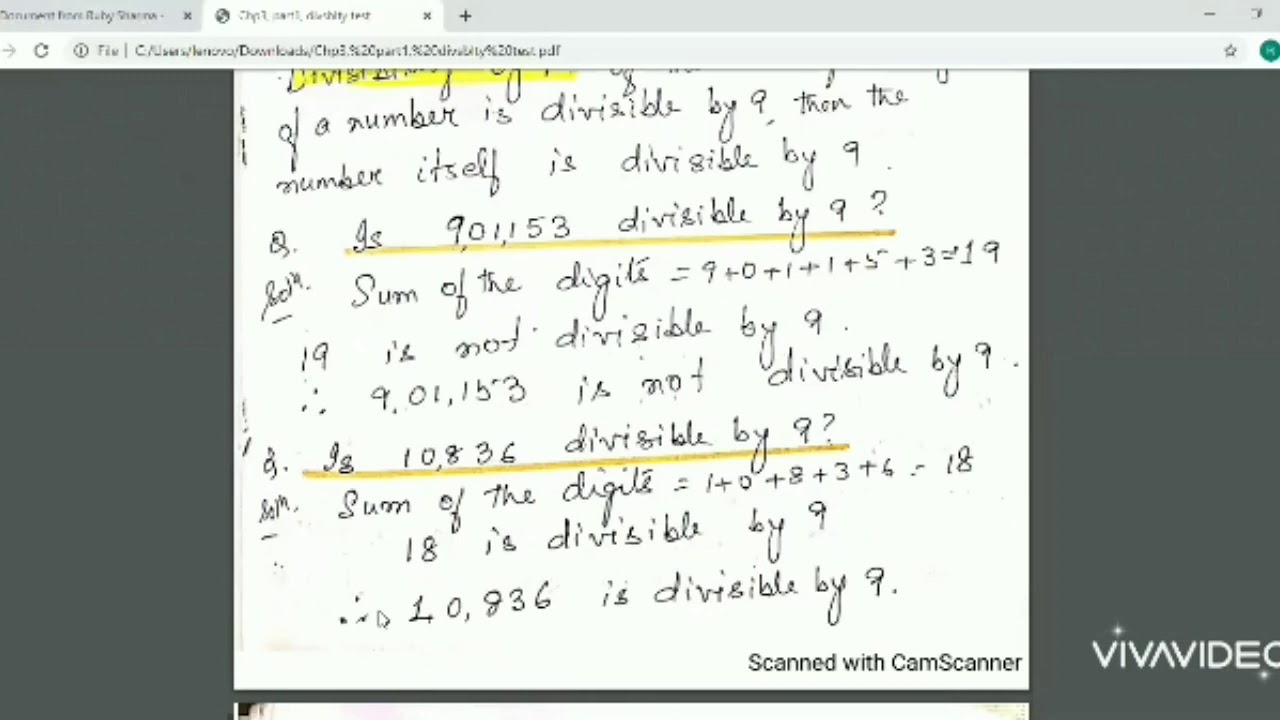 Document from Ruby Sharma -
Chp3, part1, divsblty test
File | C:/Users/lenovo/Downloads/Chp3,%20part1,%20divsblty%20test.pdf
Divisibility by
of a number is divisible by 9, then the
number itself is divisible by 9.
Q. Is 9,01,153 divisible by 9?
Soln. Sum of the digits = 9+0+1+1+5+3=19
19 is not divisible by 9.
∴ 9,01,153 is not divisible by 9.
Q. Is 10,836 divisible by 9?
Soln. Sum of the digits = 1+0+8+3+6 = 18
18 is divisible by 9
∴ 10,836 is divisible by 9.
Scanned with CamScanner
VIVAVIDEO